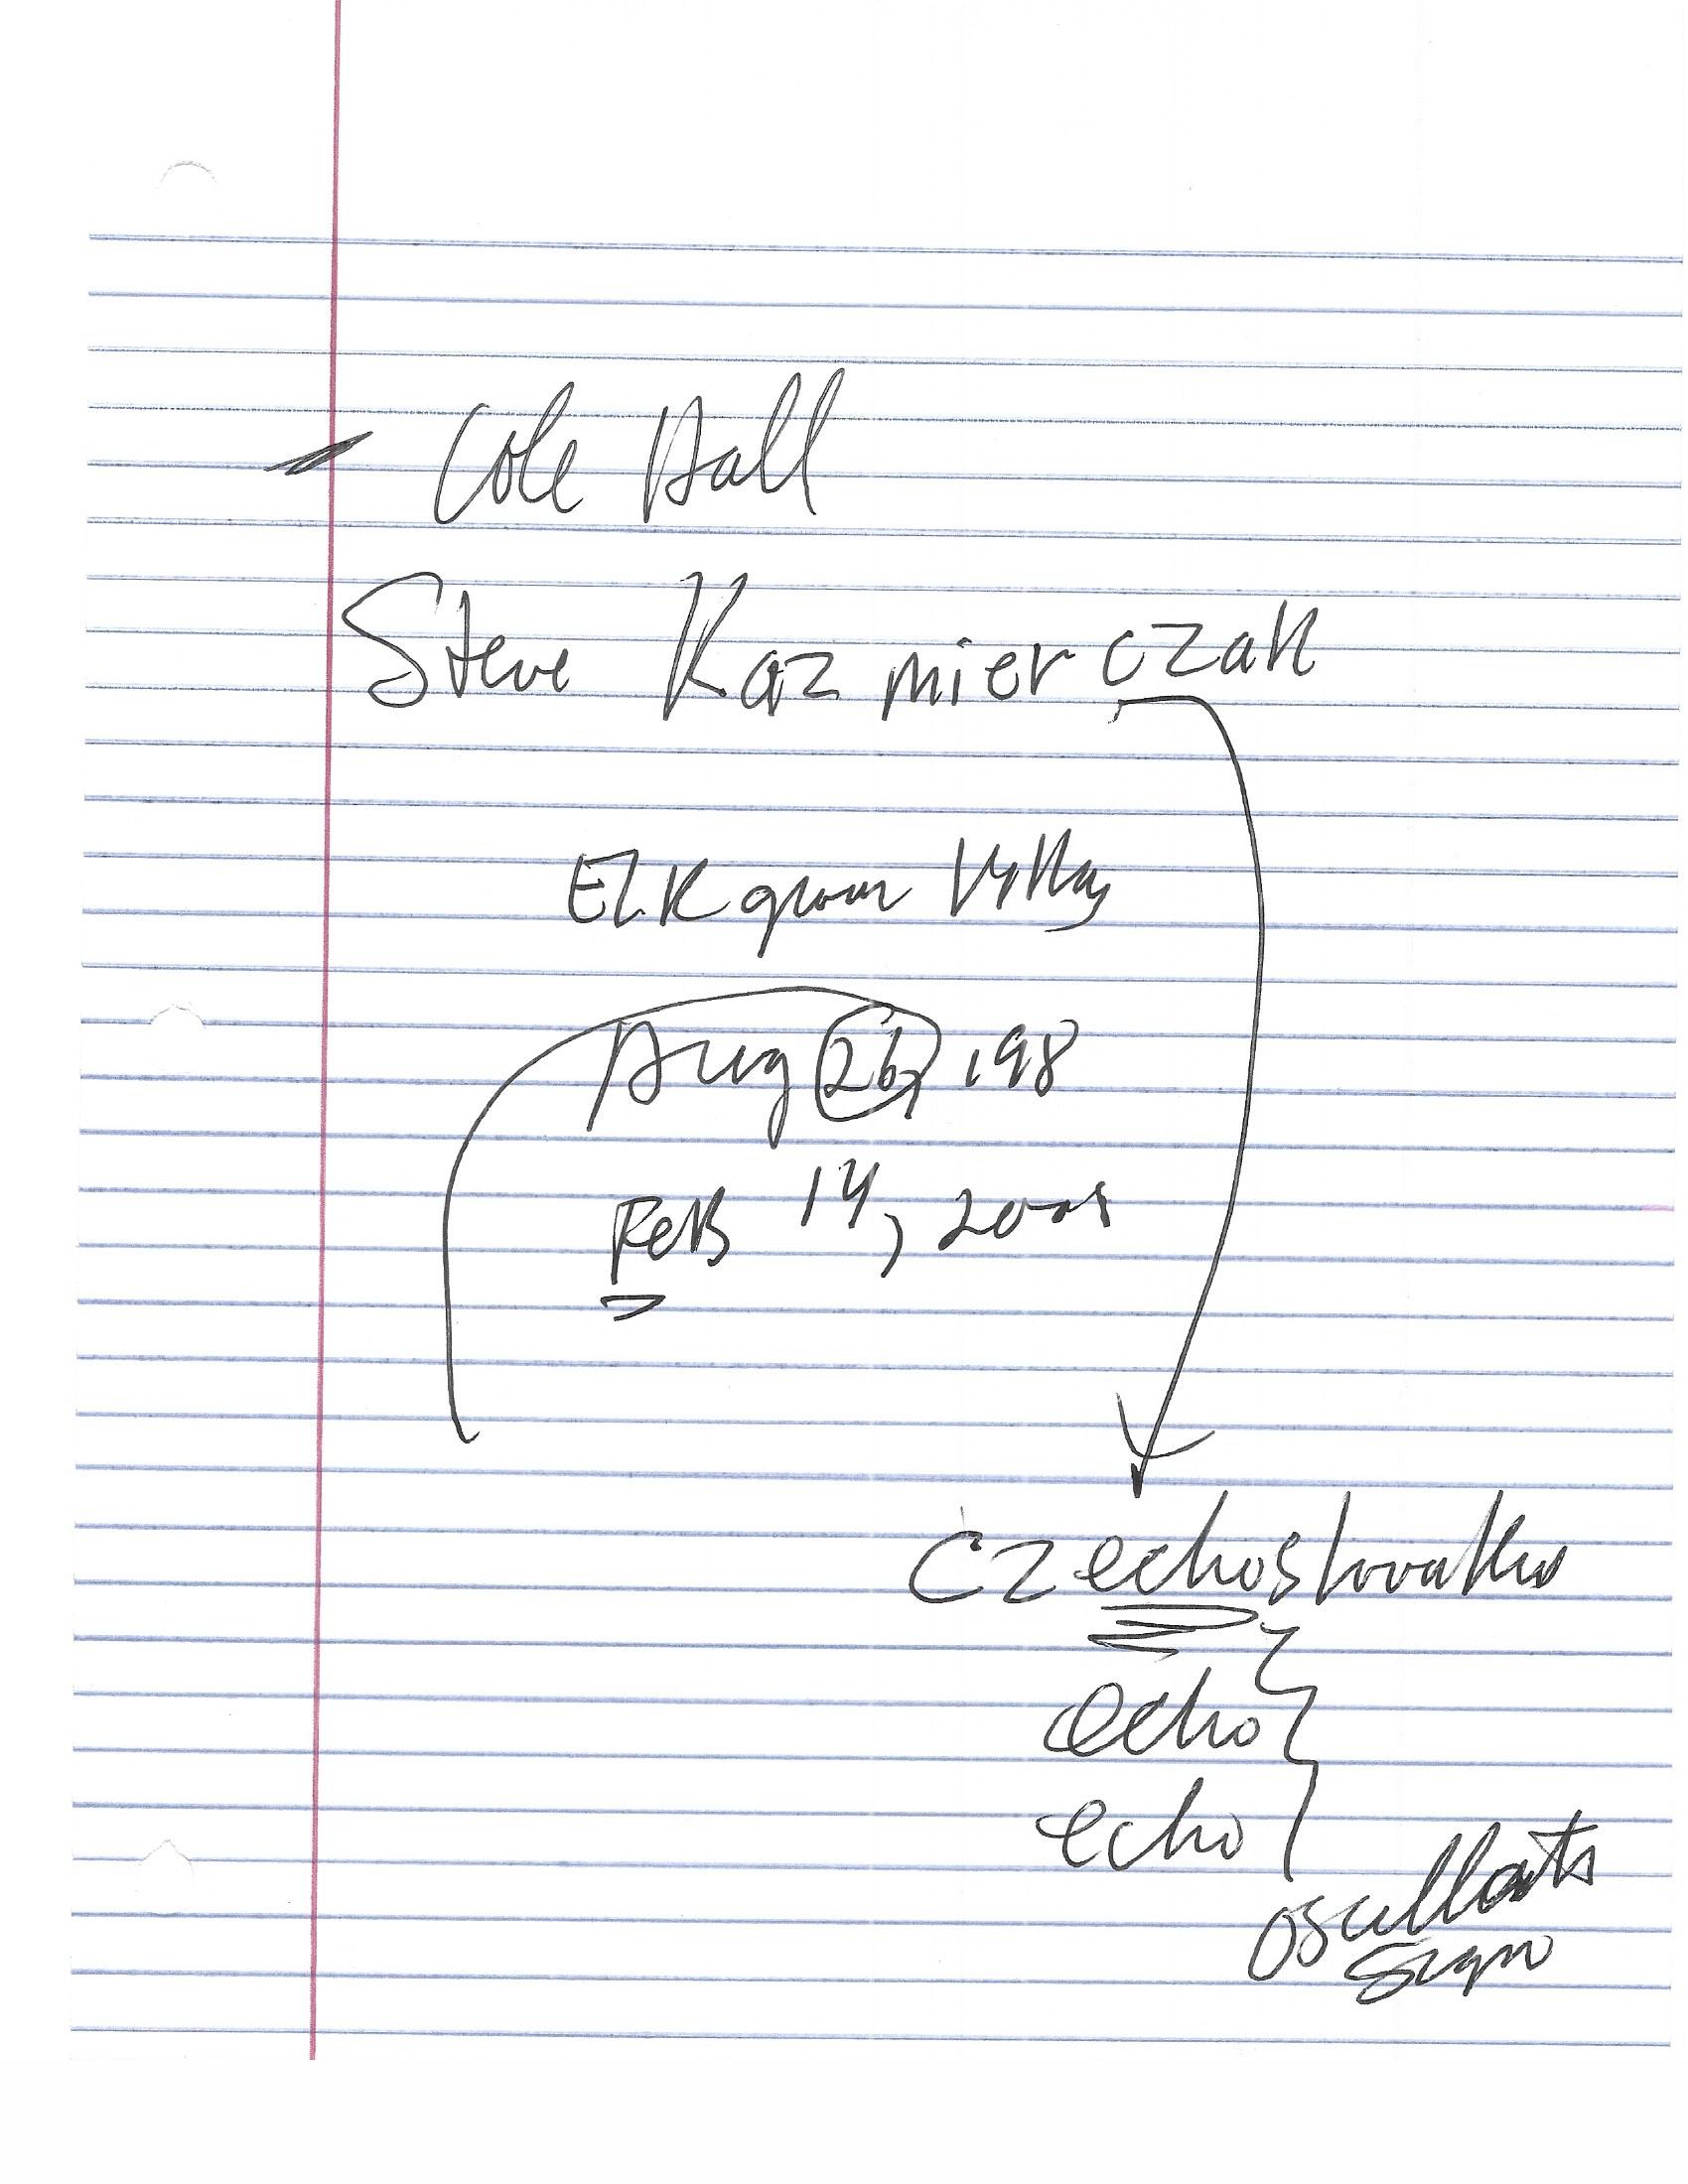 Cole Hall
Steve Kazmierczak
Elk grove Village
Aug 26, 198
Feb 14, 2008
Czechoslovakia
echo
echo